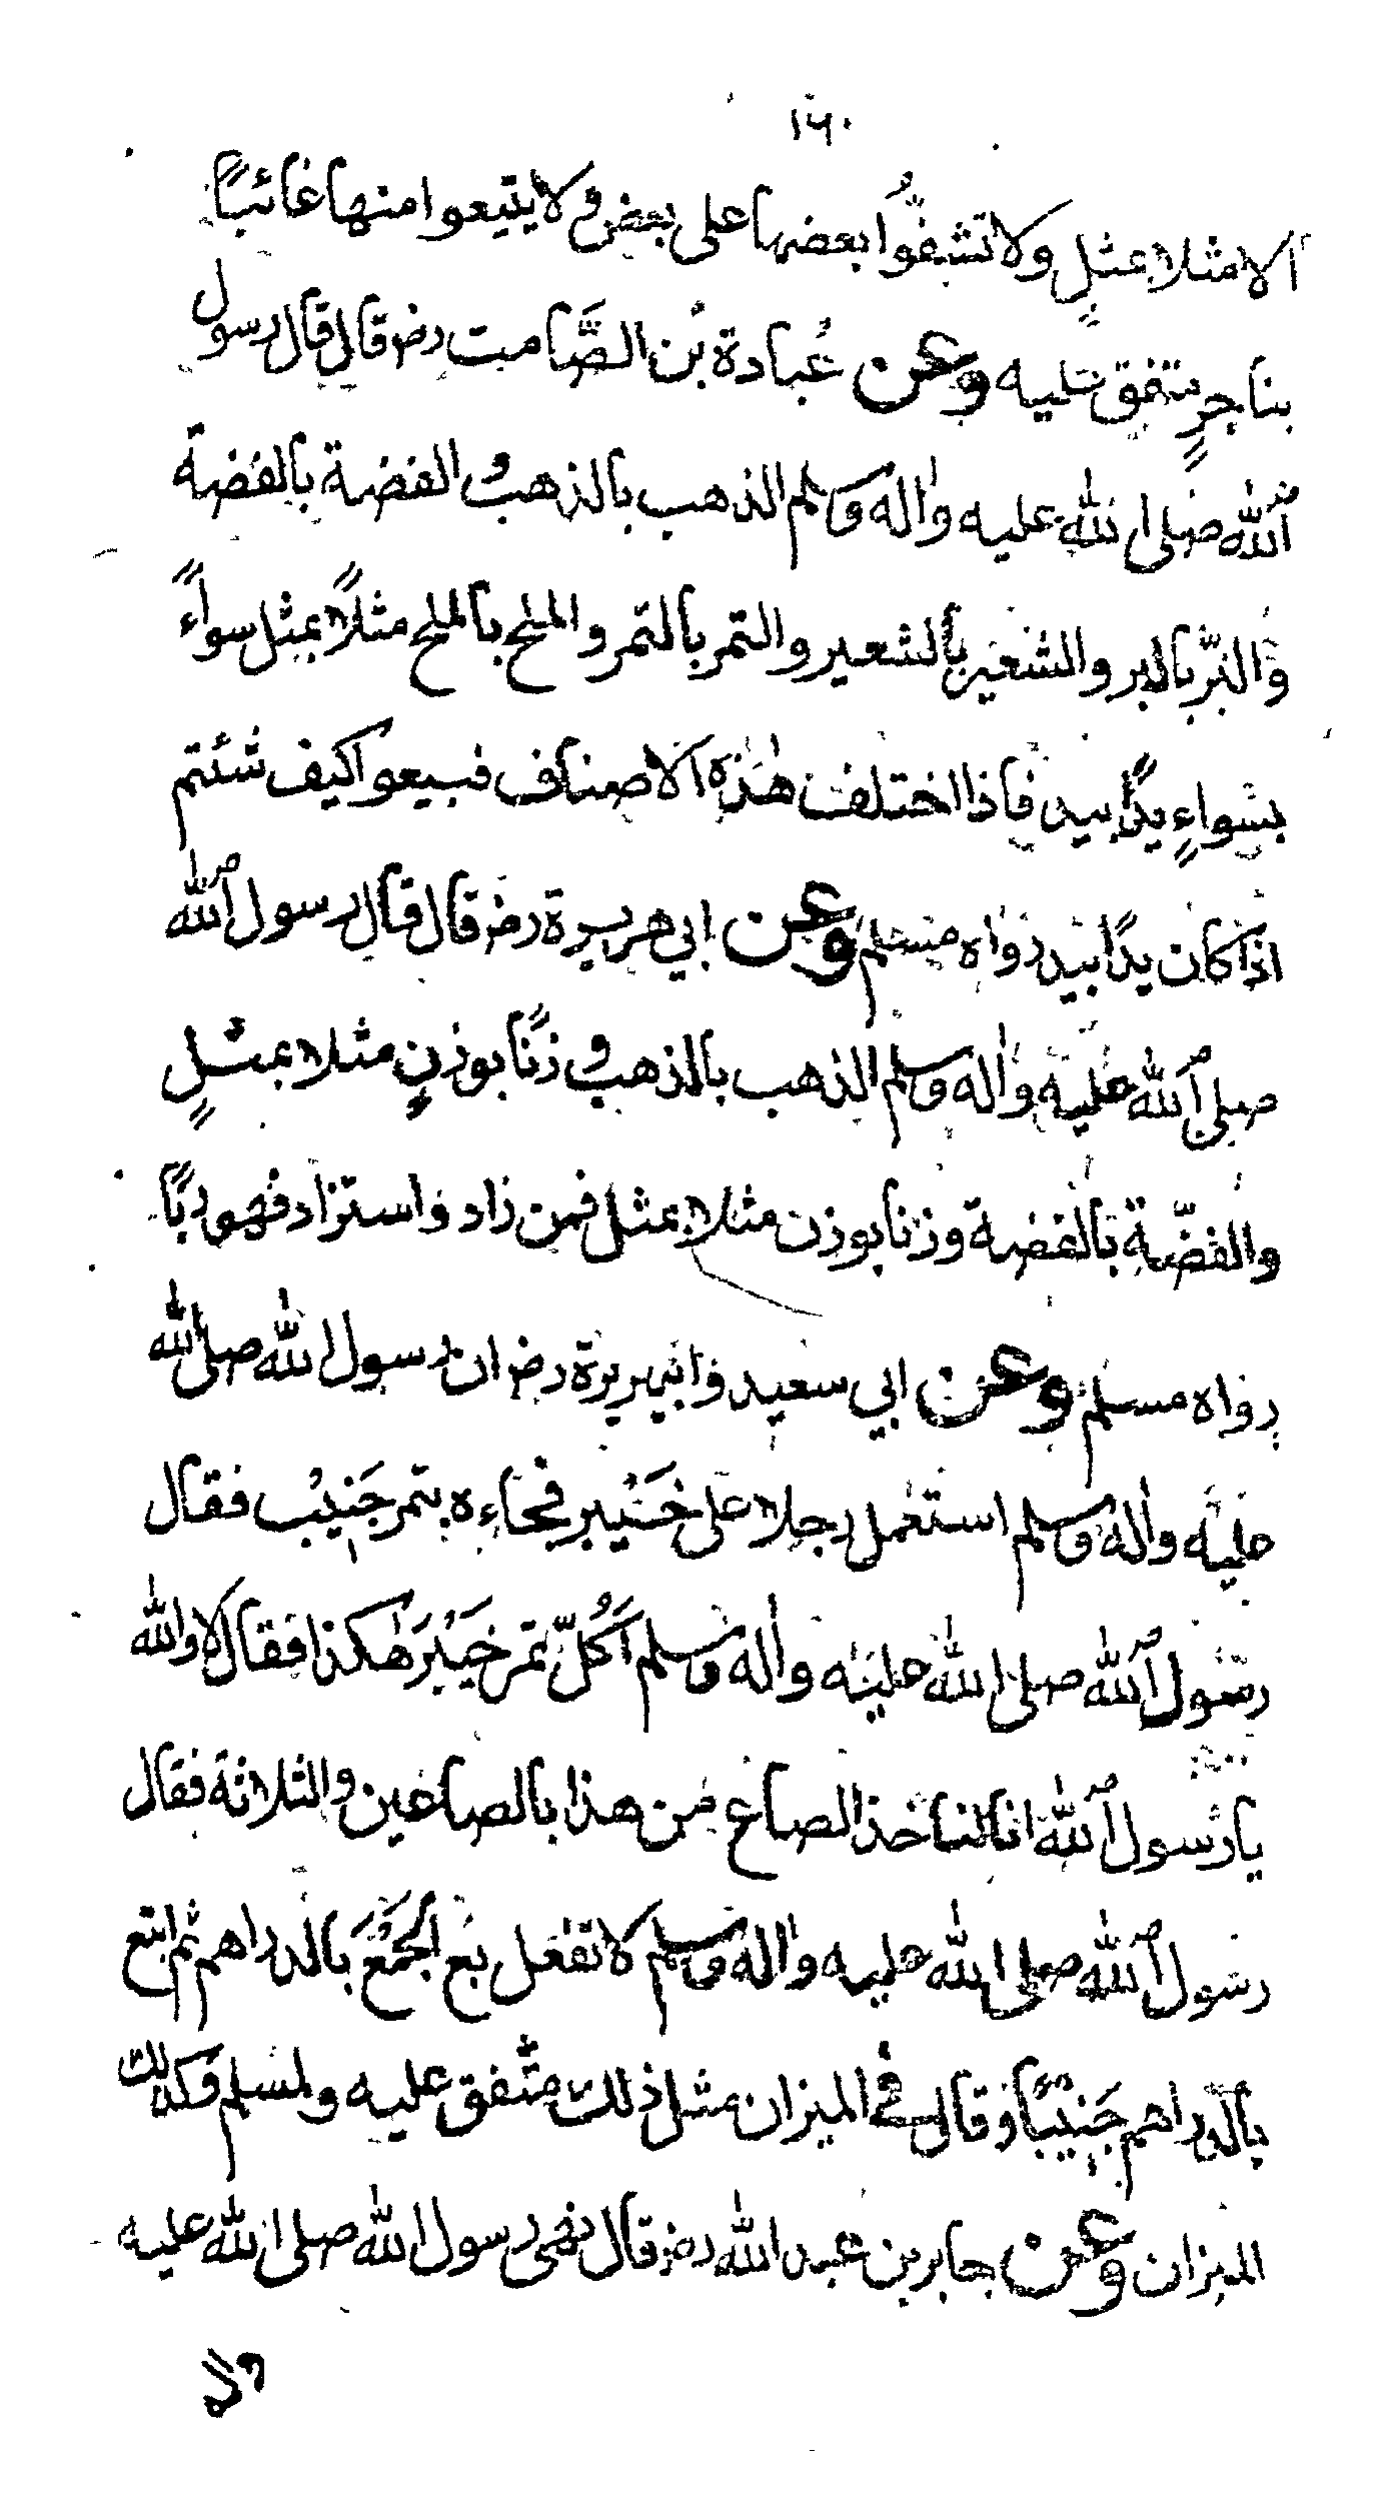 ١٦٠
الا مثلا بمثلٍ ولا تشفُّوا بعضها على بعض ولا يتيعوا منها غائبًا
بناجرٍ متفق عليه وعن عُبادة بُن الصَّامت رض قال قال رسول
الله صلى الله عليه واله وسلم الذهب بالذهب والفضة بالفضة
والبُرّ بالبر والشعير بالشعير والتمر بالتمر والملح بالملح مثلًا بمثل سواءً
بسواءٍ يدًا بيد فاذا اختلفت هٰذه الاصناف فبيعوا كيف شئتم
اذا كان يدًا بيد رواه مسلم وعن ابي هريرة رض قال قال رسول الله
صلى الله عليه واله وسلم الذهب بالذهب وزنًا بوزنٍ مثلا بمثلٍ
والفضّة بالفضة وزنا بوزن مثلا بمثل فمن زاد واستزاد فهو ربًا
رواه مسلم وعن ابي سعيد وابيهريرة رض ان رسول الله صلى الله
عليه واله وسلم استعمل رجلا على خَيْبر فجاءه بتمر جَنيْب فقال
رسول الله صلى الله عليه واله وسلم اَكُلّ تمر خيْبَرَ هٰكذا فقال لا والله
يا رسول الله انا لنا خذ الصاع من هذا بالصاعين والثلاثة فقال
رسول الله صلى الله عليه واله وسلم لا تفعل بع الجَمْعَ بالدراهم ثم ابتع
بالدراهم جَنيْبًا وقال في الميزان مثل ذلك متفق عليه ولمسلم وكذلك
الميزان وعن جابر بن عبد الله رض قال نهى رسول الله صلى الله عليه